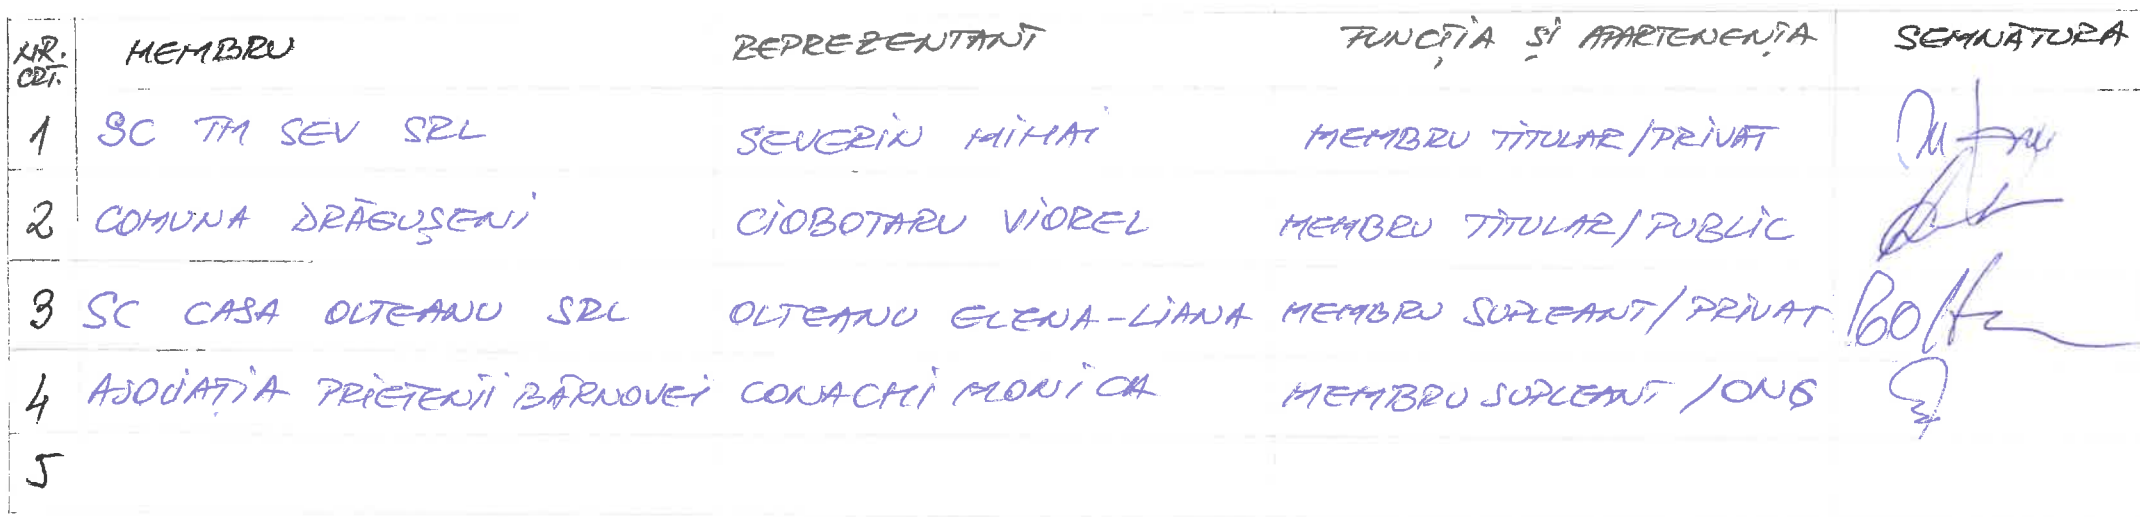 NR. CRT. MEMBRU REPREZENTANT FUNCȚIA ȘI APARTENENȚA SEMNĂTURA
1 SC TM SEV SRL SEVERIN MIHAI MEMBRU TITULAR/PRIVAT
2 COMUNA DRĂGUȘENI CIOBOTARU VIOREL MEMBRU TITULAR/PUBLIC
3 SC CASA OLTEANU SRL OLTEANU ELENA-LIANA MEMBRU SUPLEANT/PRIVAT
4 ASOCIAȚIA PRIETENII BÂRNOVEI CONACHI MONICA MEMBRU SUPLEANT/ONG
5